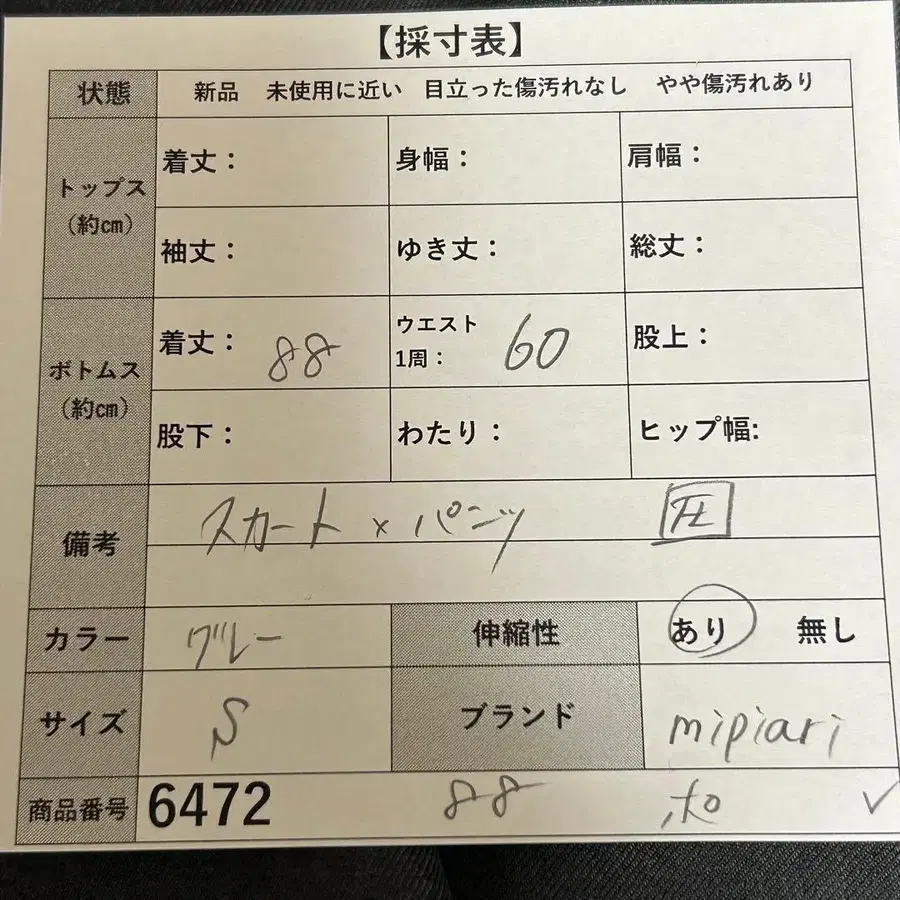 【採寸表】
状態 新品 未使用に近い 目立った傷汚れなし やや傷汚れあり
トップス（約㎝） 着丈： 身幅： 肩幅：
袖丈： ゆき丈： 総丈：
ボトムス（約㎝） 着丈：88 ウエスト1周：60 股上：
股下： わたり： ヒップ幅:
備考 スカート×パンツ 圧
カラー グレー 伸縮性 あり 無し
サイズ S ブランド mipiari
商品番号 6472 88 ✓